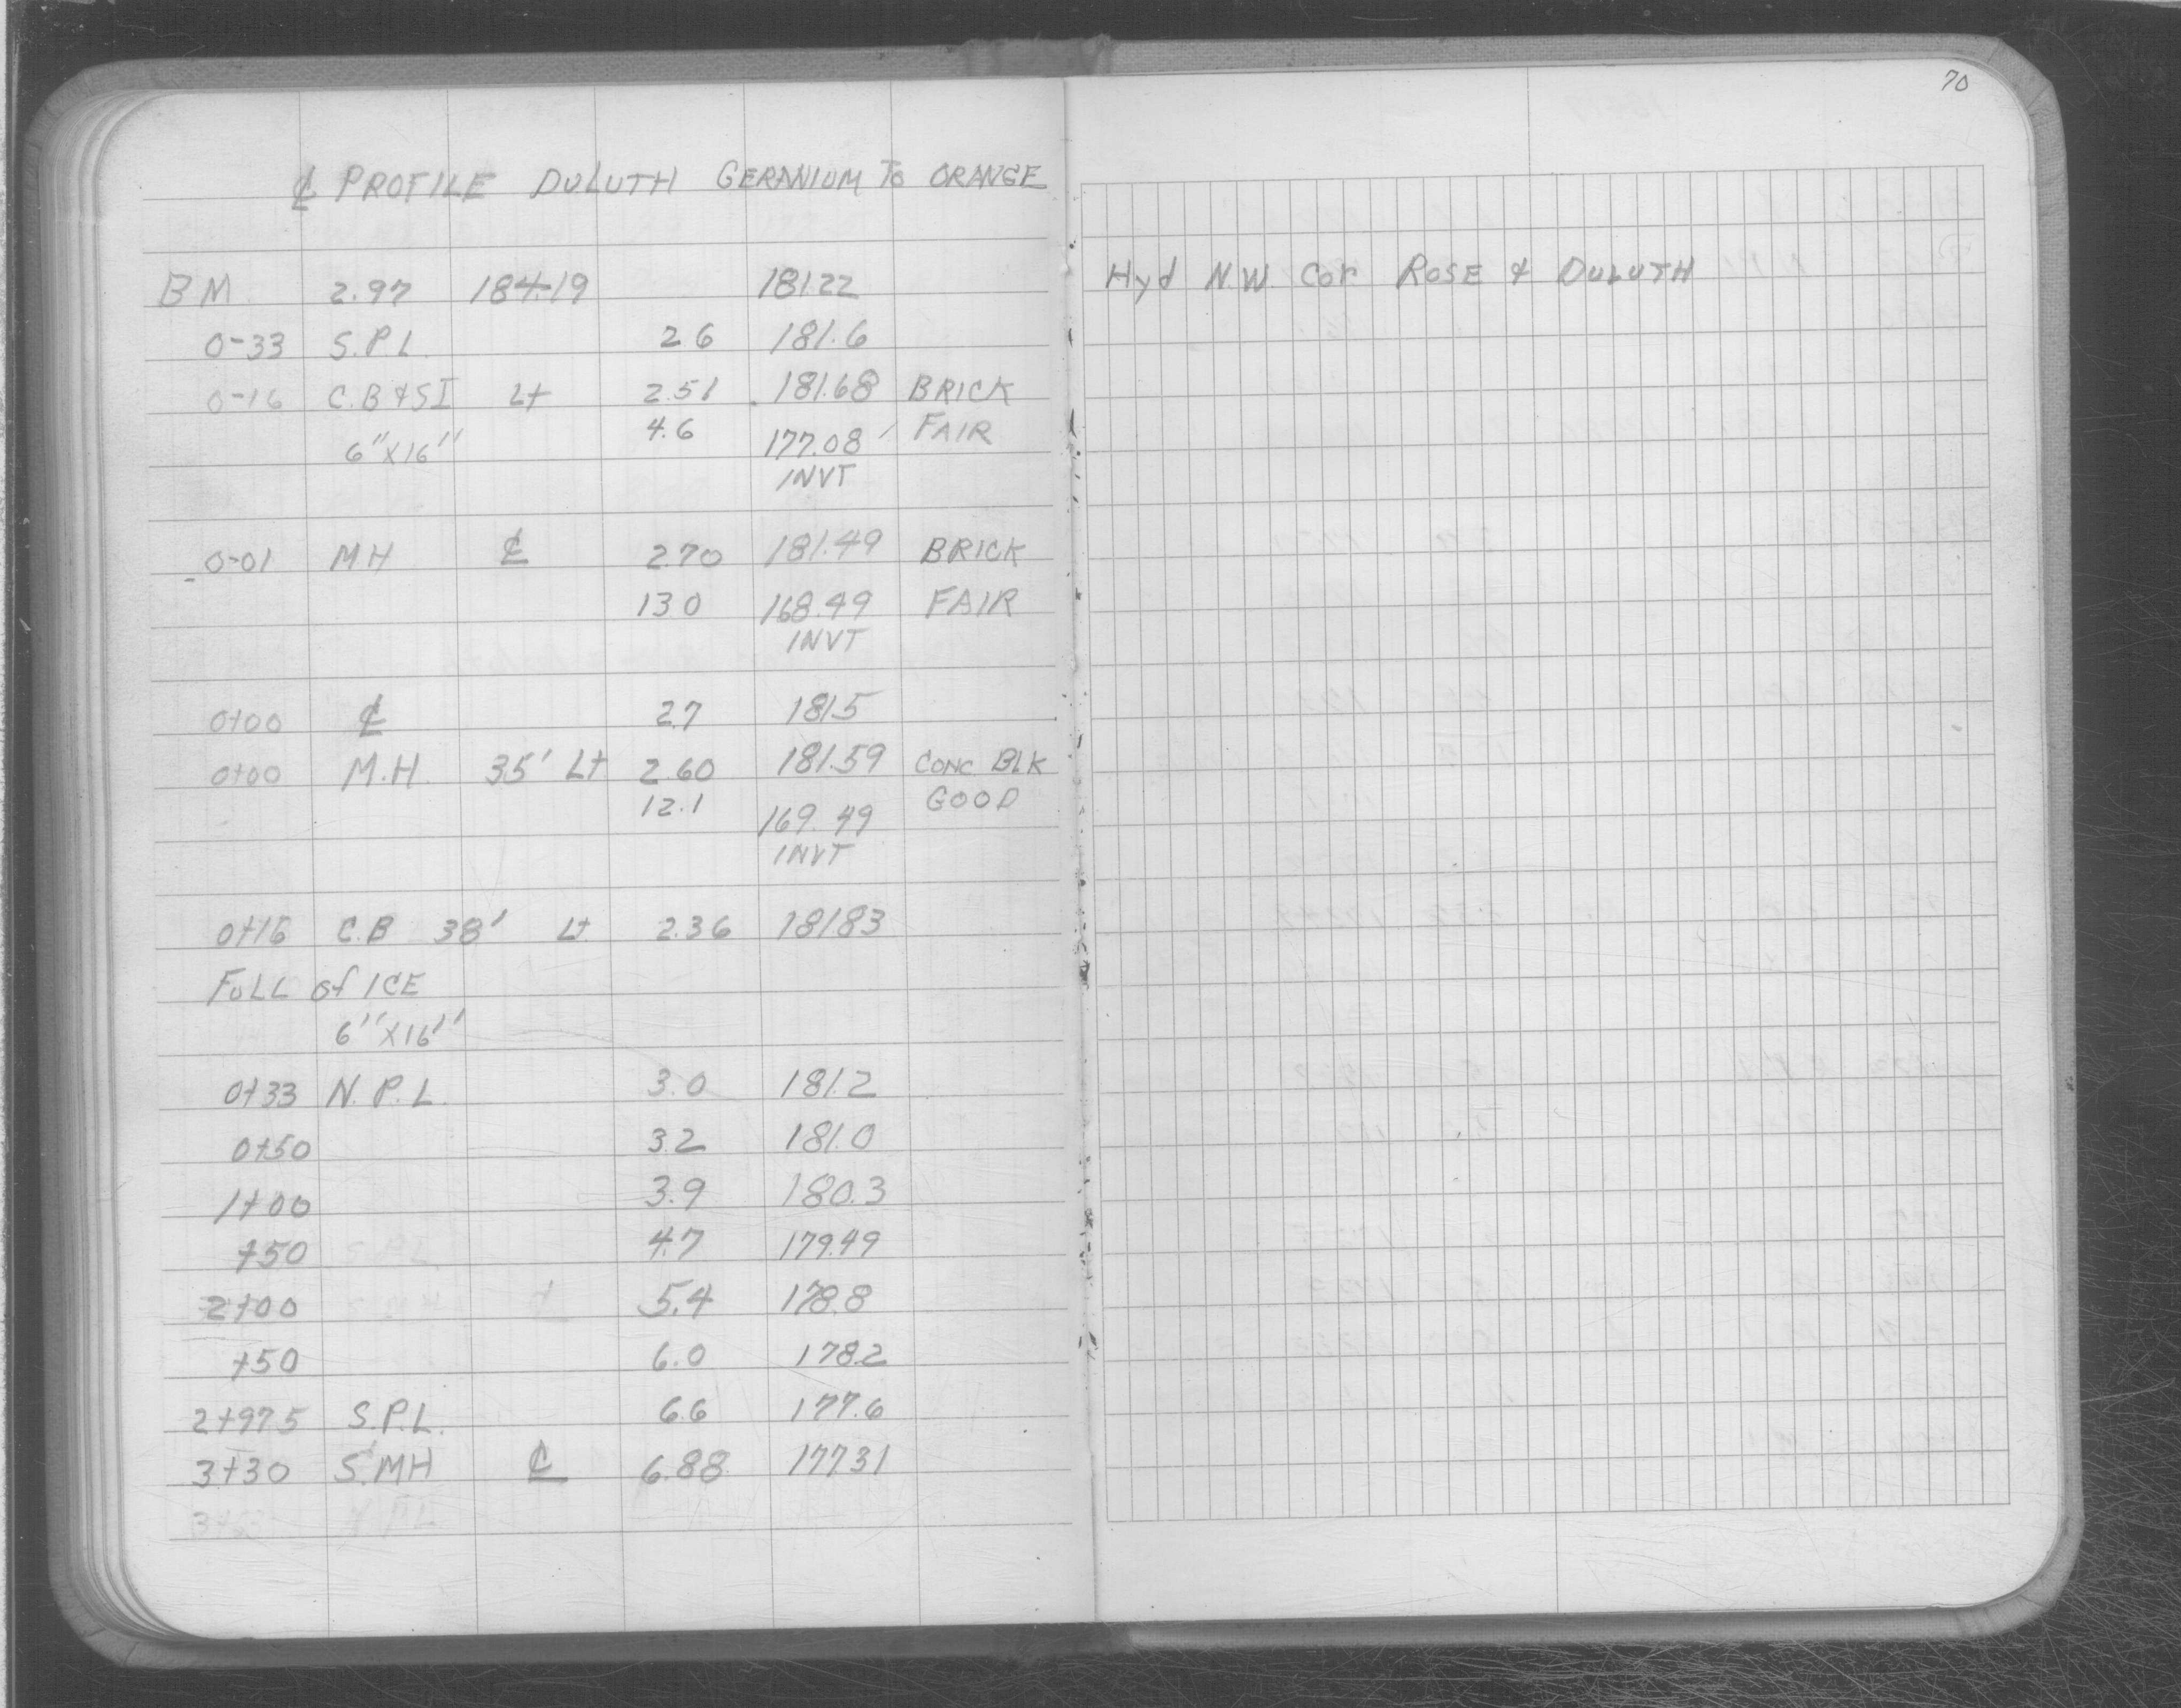 70
℄ PROFILE DULUTH GERANIUM TO ORANGE
BM 2.97 184.19 181.22 Hyd N.W. Cor. ROSE & DULUTH
0-33 S.P.L. 2.6 181.6
0-16 C.B & SI Lt 2.51 181.68 BRICK
6"X16" 4.6 177.08 FAIR
INVT
0-01 MH ℄ 2.70 181.49 BRICK
13.0 168.49 FAIR
INVT
0+00 ℄ 2.7 181.5
0+00 M.H. 35' Lt 2.60 181.59 CONC. BLK
12.1 169.49 GOOD
INVT
0+16 C.B 38' Lt 2.36 181.83
FULL of ICE
6"X16"
0+33 N.P.L. 3.0 181.2
0+50 3.2 181.0
1+00 3.9 180.3
+50 4.7 179.49
2+00 5.4 178.8
+50 6.0 178.2
2+97.5 S.P.L. 6.6 177.6
3+30 S.MH ℄ 6.88 177.31